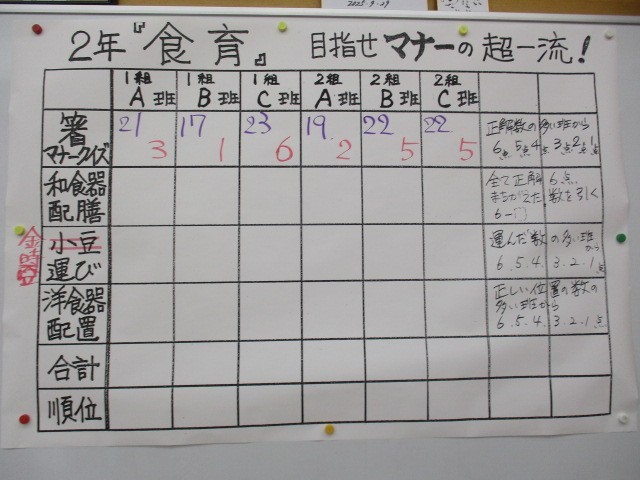 2年『食育』 目指せマナーの超一流!
1組 A班 1組 B班 1組 C班 2組 A班 2組 B班 2組 C班
箸マナークイズ
21 17 23 19 22 22
3 1 6 2 5 5
正解数の多い班から
6点 5点 4点 3点 2点 1点
和食器配膳
全て正解 6点
まちがえた数を引く
6-□
金時豆
小豆
運び
運んだ数の多い班から
6.5.4.3.2.1点
洋食器配置
正しい位置の数の
多い班から
6.5.4.3.2.1点
合計
順位